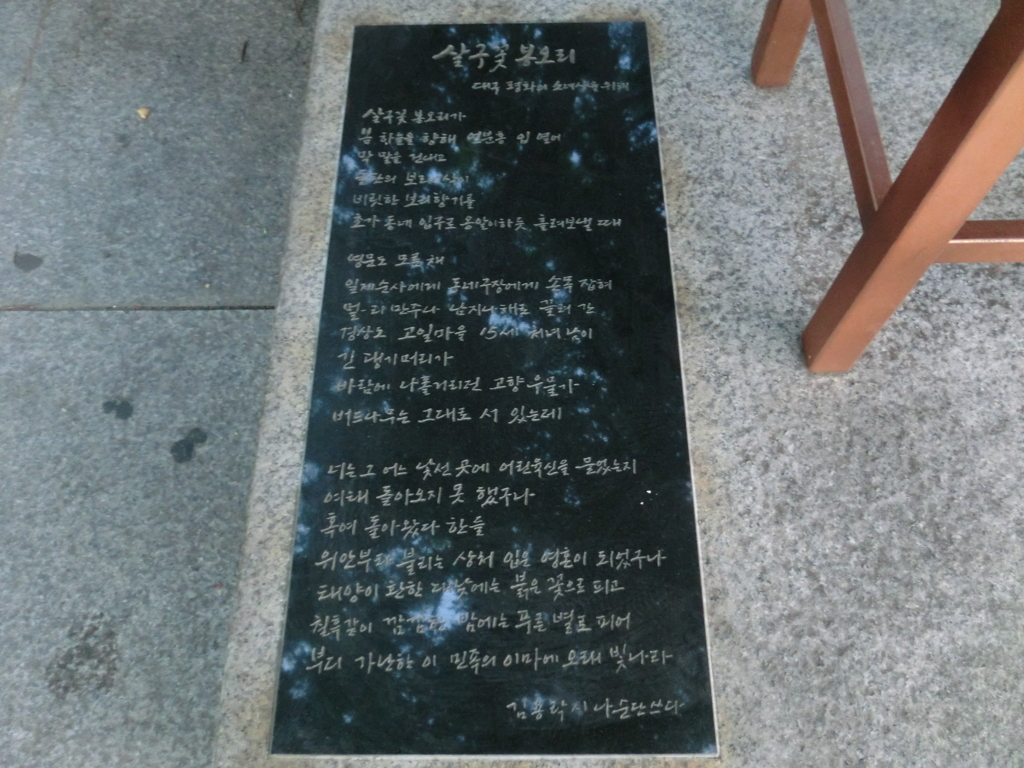 살구꽃 봉오리
대구 평화의 소녀상을 위해
살구꽃 봉오리가
봄 하늘을 향해 연분홍 입 열어
막 말을 건네고
들판의 보리
비릿한 보리향기를
초가 동네 입구로 옹알이하듯 흘려보낼 때
영문도 모른 채
일제순사에게 동네구장에게 손목 잡혀
멀리 만주나 남지나해로 끌려 간
경상도 고일마을 15세 처녀
긴 댕기머리가
바람에 나홀거리던 고향 우물가
버드나무는 그대로 서 있는데
너는 그 어느 낯선 곳에 어린육신을 묻었는지
여태 돌아오지 못 했구나
혹여 돌아왔다 한들
위안부라 불리는 상처 입은 영혼이 되었구나
태양이 환한 대낮에는 붉은 꽃으로 피고
칠흑같이 캄캄한 밤에는 푸른 별로 피어
부디 가난한 이 민족의 이마에 오래 빛나라
김용락 시 나순단 쓰다